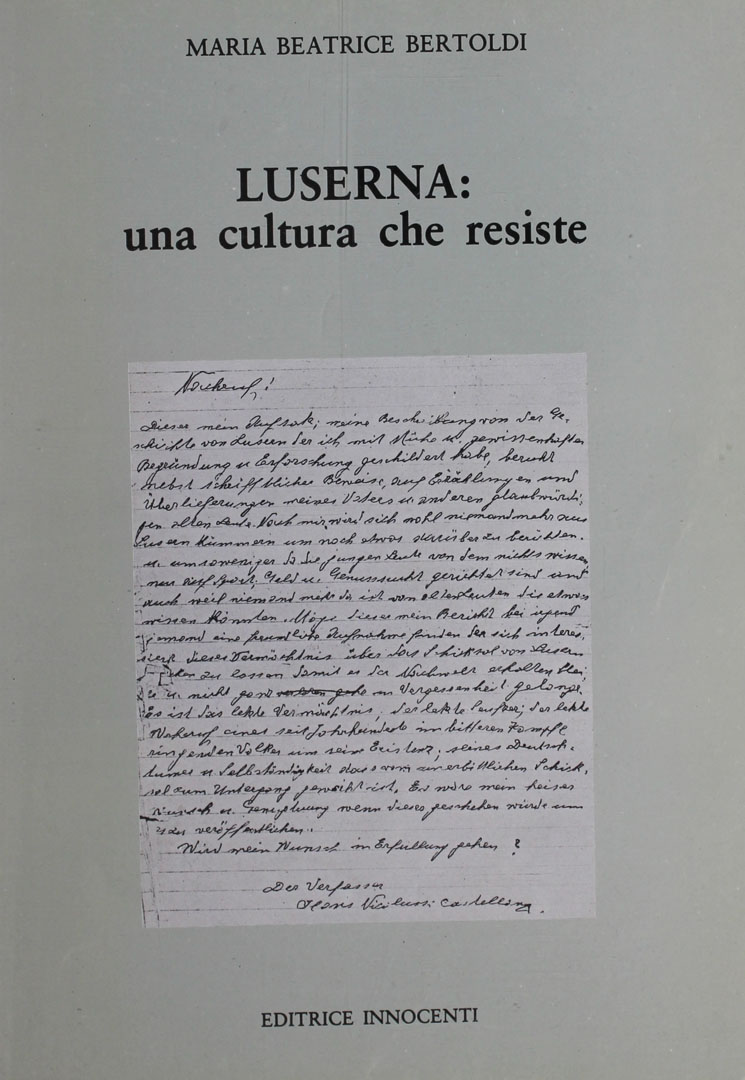 MARIA BEATRICE BERTOLDI
LUSERNA:
una cultura che resiste
Nachruf!
Dieser mein Aufsatz; meine Beschreibung von der Ge-
schichte von Lusern der ich mit Mühe u. gewissenhafter
Begründung u Erforschung geschildert habe, beruht
nebst schriftlicher Beweise, auf Erzählungen und
Überlieferungen meines Vaters u anderen glaubwürdi;
gen alten Leute. Nach mir wird sich wohl niemand mehr aus
Lusern kümmern um noch etwas darüber zu berichten.
u. umsoweniger da die jungen Leute von dem nichts wissen
nur auf Sport, Geld u. Genusssucht gerichtet sind und
auch weil niemand mehr da ist von alten Leuten die etwas
wissen könnten. Möge dieser mein Bericht bei irgend
jemand eine freundliche Aufnahme finden der sich interes,
siert dieses Vermächtnis über das Schicksal von Lusern
zu lassen damit es der Nachwelt erhalten blei;
u nicht ganz in Vergessenheit gelange.
Es ist das letzte Vermächtnis, der letzte Seufzer; der letzte
eines seit Jahrhunderte im bitteren Kampfe
ringenden Volkes um seine Existenz; seines Deutsch-
tumes u Selbständigkeit das vom unerbittlichen Schick,
sal zum Untergang geweiht ist. Es wäre mein heiser
Wunsch u. Genugtuung wenn dieses geschehen würde um
zu veröffentlichen.
Wird mein Wunsch in Erfüllung gehen ?
Der Verfasser
Hans Nicolussi Castellan
EDITRICE INNOCENTI